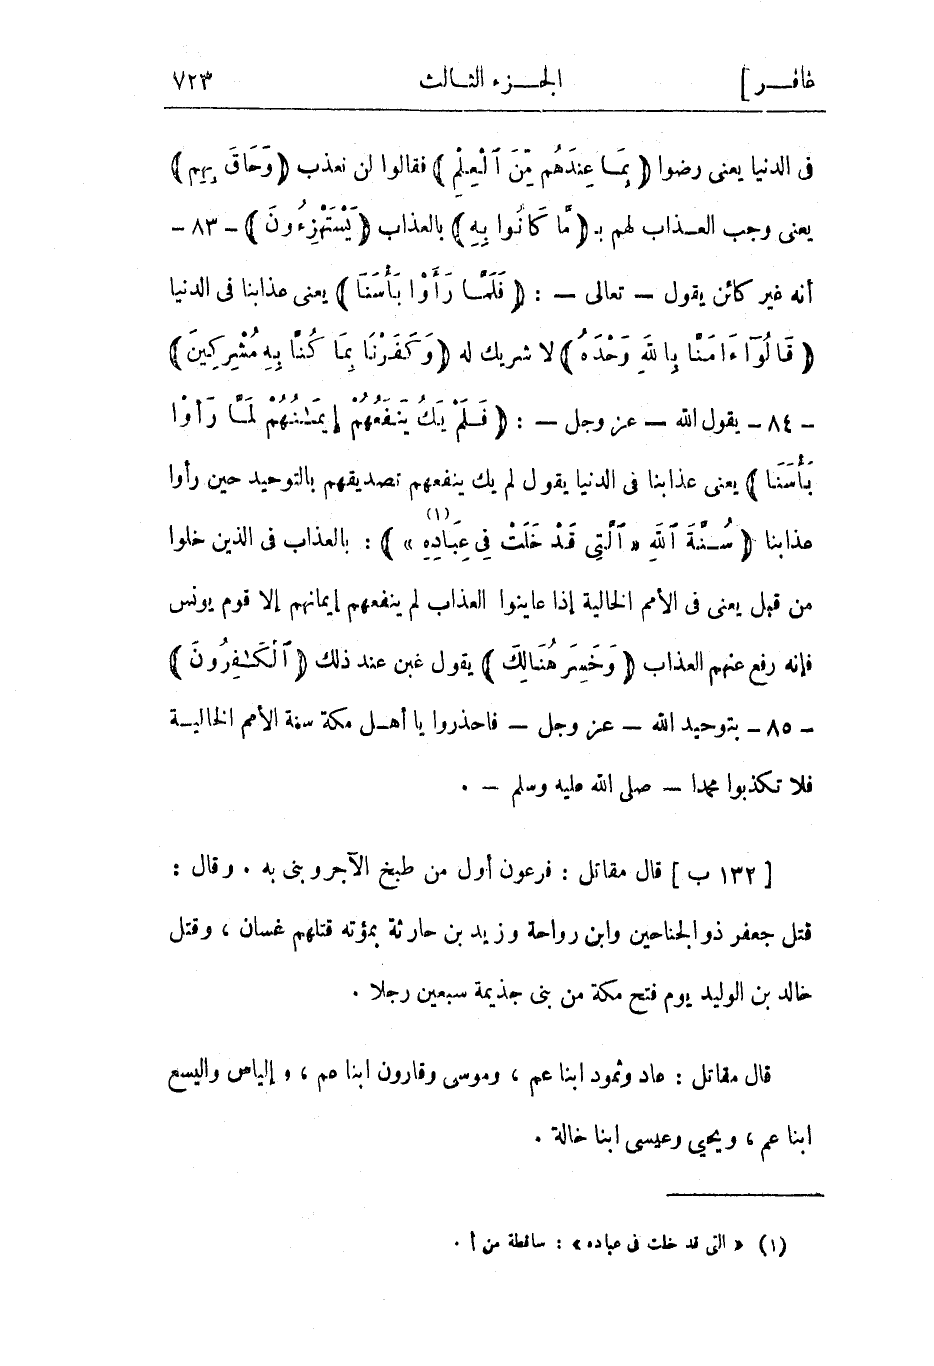 غافـــر ] الجـــزء الثـالث ٧٢٣
فى الدنيا يعنى رضوا ( بِمَـا عِندَهُم مِّنَ ٱلْعِلْمِ ) فقالوا لن نعذب ( وَحَاقَ بِهِم )
يعنى وجب العـذاب لهم بـ ( مَّا كَانُوا بِهِ ) بالعذاب ( يَسْتَهْزِءُونَ ) - ٨٣ -
أنه غير كائن يقول — تعالى — : ( فَلَمَّـا رَأَوْا بَأْسَنَا ) يعنى عذابنا فى الدنيا
( قَالُوٓا ءَامَنَّا بِاللَّهِ وَحْدَهُ ) لا شريك له ( وَكَفَرْنَا بِمَا كُنَّا بِهِ مُشْرِكِينَ )
- ٨٤ - يقول الله — عز وجل — : ( فَـلَمْ يَكُ يَنفَعُهُمْ إِيمَـٰنُهُمْ لَمَّـا رَأَوْا
بَأْسَنَا ) يعنى عذابنا فى الدنيا يقول لم يك ينفعهم تصديقهم بالتوحيد حين رأوا
عذابنا ( سُـنَّةَ ٱللَّهِ « ٱلَّتِى قَدْ خَلَتْ فِى عِبَادِهِ » (١) ) : بالعذاب فى الذين خلوا
من قبل يعنى فى الأمم الخالية إذا عاينوا العذاب لم ينفعهم إيمانهم إلا قوم يونس
فإنه رفع عنهم العذاب ( وَخَسِرَ هُنَالِكَ ) يقول غبن عند ذلك ( ٱلْكَـٰفِرُونَ )
- ٨٥ - بتوحيد الله — عز وجل — فاحذروا يا أهـل مكة سنة الأمم الخاليـة
فلا تكذبوا محمدا — صلى الله عليه وسلم — .
[ ١٣٢ ب ] قال مقاتل : فرعون أول من طبخ الآجر وبنى به . وقال :
قتل جعفر ذو الجناحين وابن رواحة وزيد بن حارثة بمؤته قتلهم غسان ، وقتل
خالد بن الوليد يوم فتح مكة من بنى جذيمة سبعين رجلا .
قال مقاتل : عاد وثمود ابنا عم ، وموسى وقارون ابنا عم ، و إلياس واليسع
ابنا عم ، ويحيى وعيسى ابنا خالة .
(١) « التى قد خلت فى عباده » : ساقطة من أ .